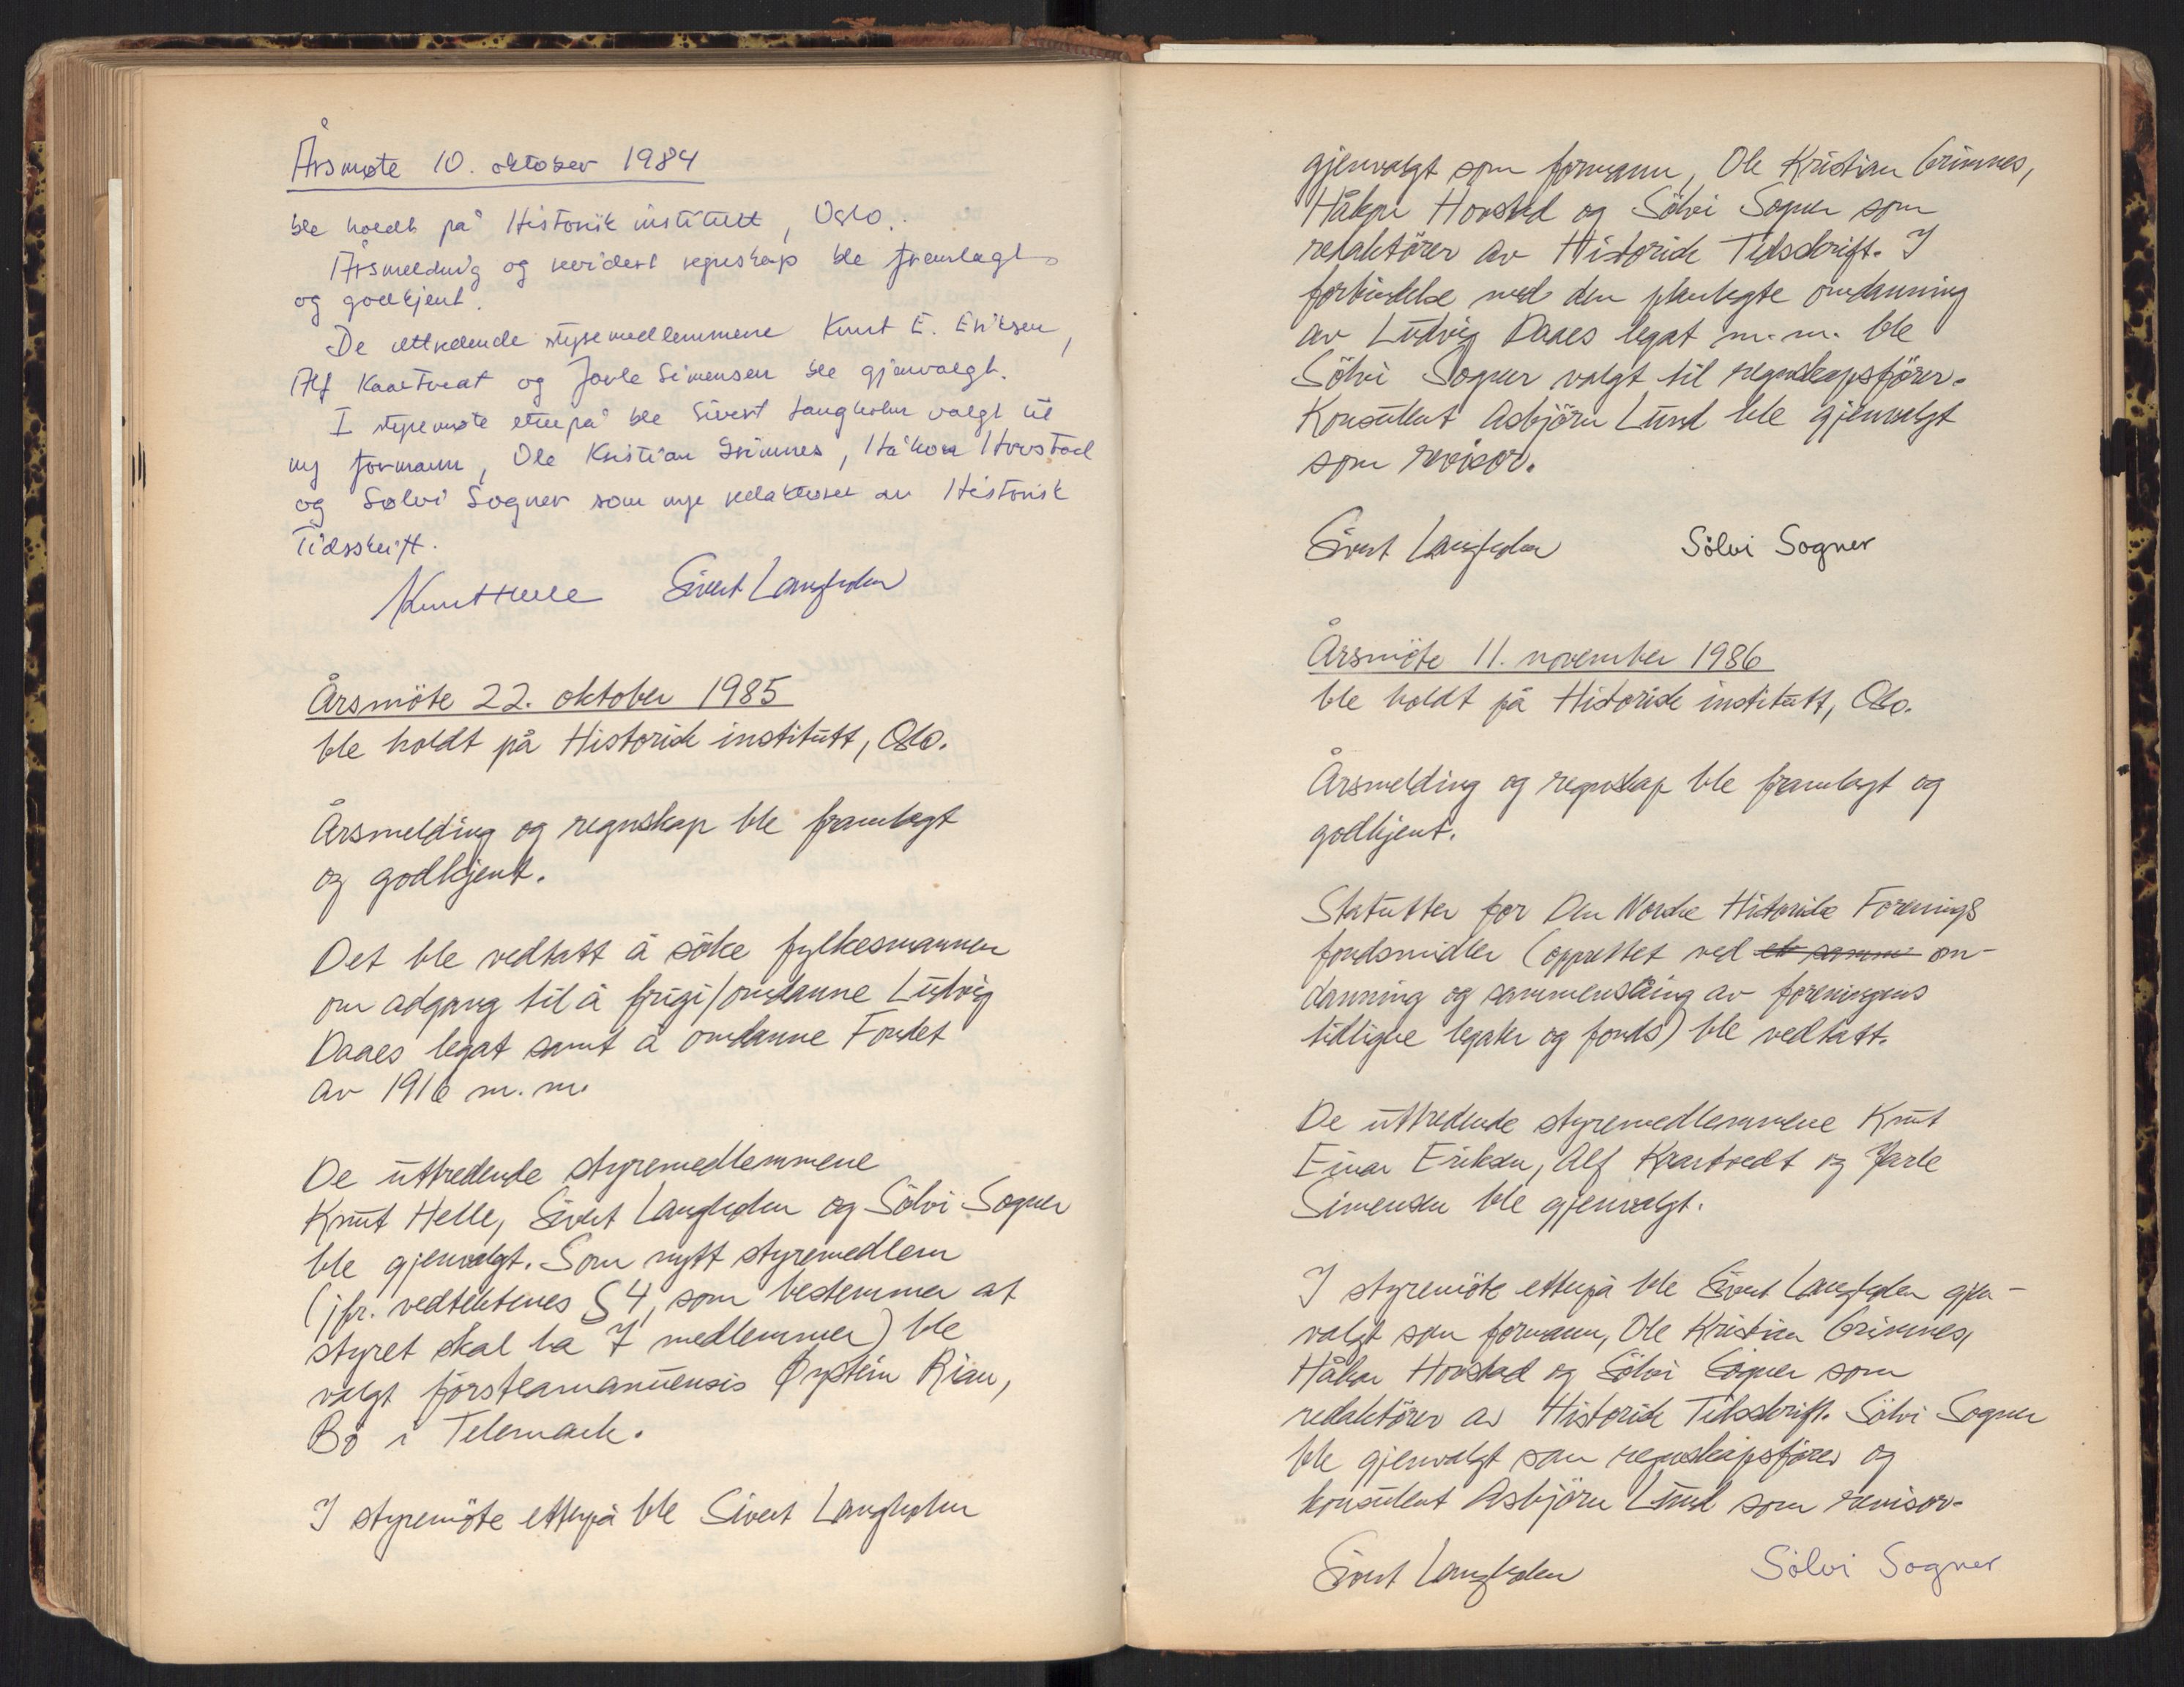 Årsmøte 10. oktober 1984
ble holdt på Historisk institutt, Oslo.
Årsmelding og revidert regnskap ble fremlagt
og godkjent.
De uttredende styremedlemmene Knut E. Eriksen,
Alf Kaartvedt og Jarle Simensen ble gjenvalgt.
I styremøte etterpå ble Sivert Langholm valgt til
ny formann, Ole Kristian Grimnes, Håkon Hovstad
og Sølvi Sogner som nye redaktører av Historisk
Tidsskrift.
Knut Helle Sivert Langholm
Årsmöte 22. oktober 1985
ble holdt på Historisk institutt, Oslo.
Årsmelding og regnskap ble framlagt
og godkjent.
Det ble vedtatt å söke fylkesmannen
om adgang til å frigi/omdanne Ludvig
Daaes legat samt å omdanne Fondet
av 1916 m.m.
De uttredende styremedlemmene
Knut Helle, Sivert Langholm og Sölvi Sogner
ble gjenvalgt. Som nytt styremedlem
(jfr. vedtektenes § 4, som bestemmer at
styret skal ha 7 medlemmer) ble
valgt förstamanuensis Øystein Rian,
Bö i Telemark.
I styremöte etterpå ble Sivert Langholm
gjenvalgt som formann, Ole Kristian Grimnes,
Håkon Hovstad og Sölvi Sogner som
redaktörer av Historisk Tidsskrift. I
forbindelse med den planlagte omdanning
av Ludvig Daaes legat m.m. ble
Sölvi Sogner valgt til regnskapsförer.
Konsulent Asbjörn Lund ble gjenvalgt
som revisor.
Sivert Langholm Sölvi Sogner
Årsmöte 11. november 1986
ble holdt på Historisk institutt, Oslo.
Årsmelding og regnskap ble framlagt og
godkjent.
Statutter for Den Norske Historiske Forenings
fondsmidler (opprettet ved om-
danning og sammenslåing av foreningens
tidligere legater og fonds) ble vedtatt.
De uttredende styremedlemmene Knut
Einar Eriksen, Alf Kaartvedt og Jarle
Simensen ble gjenvalgt.
I styremöte etterpå ble Sivert Langholm gjen-
valgt som formann, Ole Kristian Grimnes,
Håkon Hovstad og Sölvi Sogner som
redaktörer av Historisk Tidsskrift. Sölvi Sogner
ble gjenvalgt som regnskapsförer og
konsulent Asbjörn Lund som revisor.
Sivert Langholm Sölvi Sogner